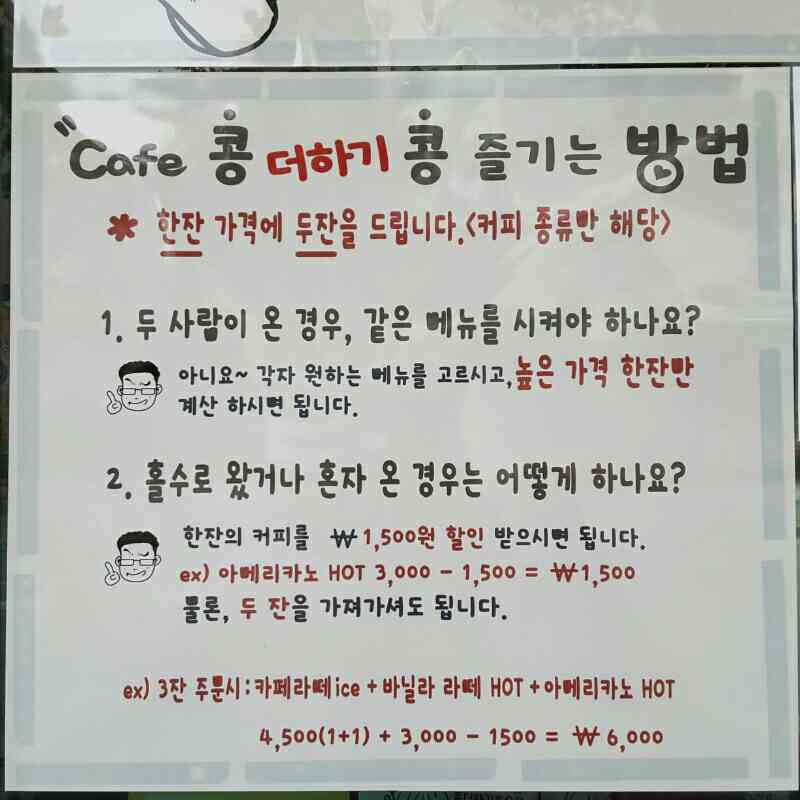 "Cafe 콩 더하기 콩 즐기는 방법
* 한잔 가격에 두잔을 드립니다.<커피 종류만 해당>
1. 두 사람이 온 경우, 같은 메뉴를 시켜야 하나요?
아니요~ 각자 원하는 메뉴를 고르시고,높은 가격 한잔만
계산 하시면 됩니다.
2. 홀수로 왔거나 혼자 온 경우는 어떻게 하나요?
한잔의 커피를 ₩1,500원 할인 받으시면 됩니다.
ex) 아메리카노 HOT 3,000 - 1,500 = ₩1,500
물론, 두 잔을 가져가셔도 됩니다.
ex) 3잔 주문시:카페라떼ice + 바닐라 라떼 HOT + 아메리카노 HOT
4,500(1+1) + 3,000 - 1500 = ₩ 6,000